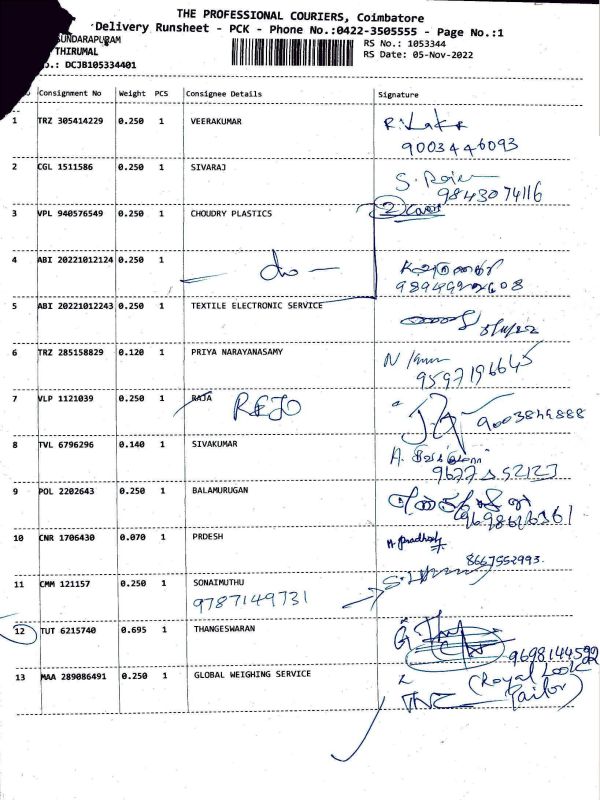 THE PROFESSIONAL COURIERS, Coimbatore
Delivery Runsheet - PCK - Phone No.:0422-3505555 - Page No.:1
SUNDARAPURAM
RS No.: 1053344
THIRUMAL
RS Date: 05-Nov-2022
.: DCJB105334401
Consignment No Weight PCS Consignee Details Signature
1 TRZ 305414229 0.250 1 VEERAKUMAR
9003446093
2 CGL 1511586 0.250 1 SIVARAJ
9843074116
3 VPL 940576549 0.250 1 CHOUDRY PLASTICS
4 ABI 20221012124 0.250 1
5 ABI 20221012243 0.250 1 TEXTILE ELECTRONIC SERVICE
6 TRZ 285158829 0.120 1 PRIYA NARAYANASAMY
9597196645
7 VLP 1121039 0.250 1 RAJA
8 TVL 6796296 0.140 1 SIVAKUMAR
9 POL 2202643 0.250 1 BALAMURUGAN
10 CNR 1706430 0.070 1 PRDESH
8667552993
11 CMM 121157 0.250 1 SONAIMUTHU
9787149731
12 TUT 6215740 0.695 1 THANGESWARAN
13 MAA 289086491 0.250 1 GLOBAL WEIGHING SERVICE
(Royal Look
Tailor)